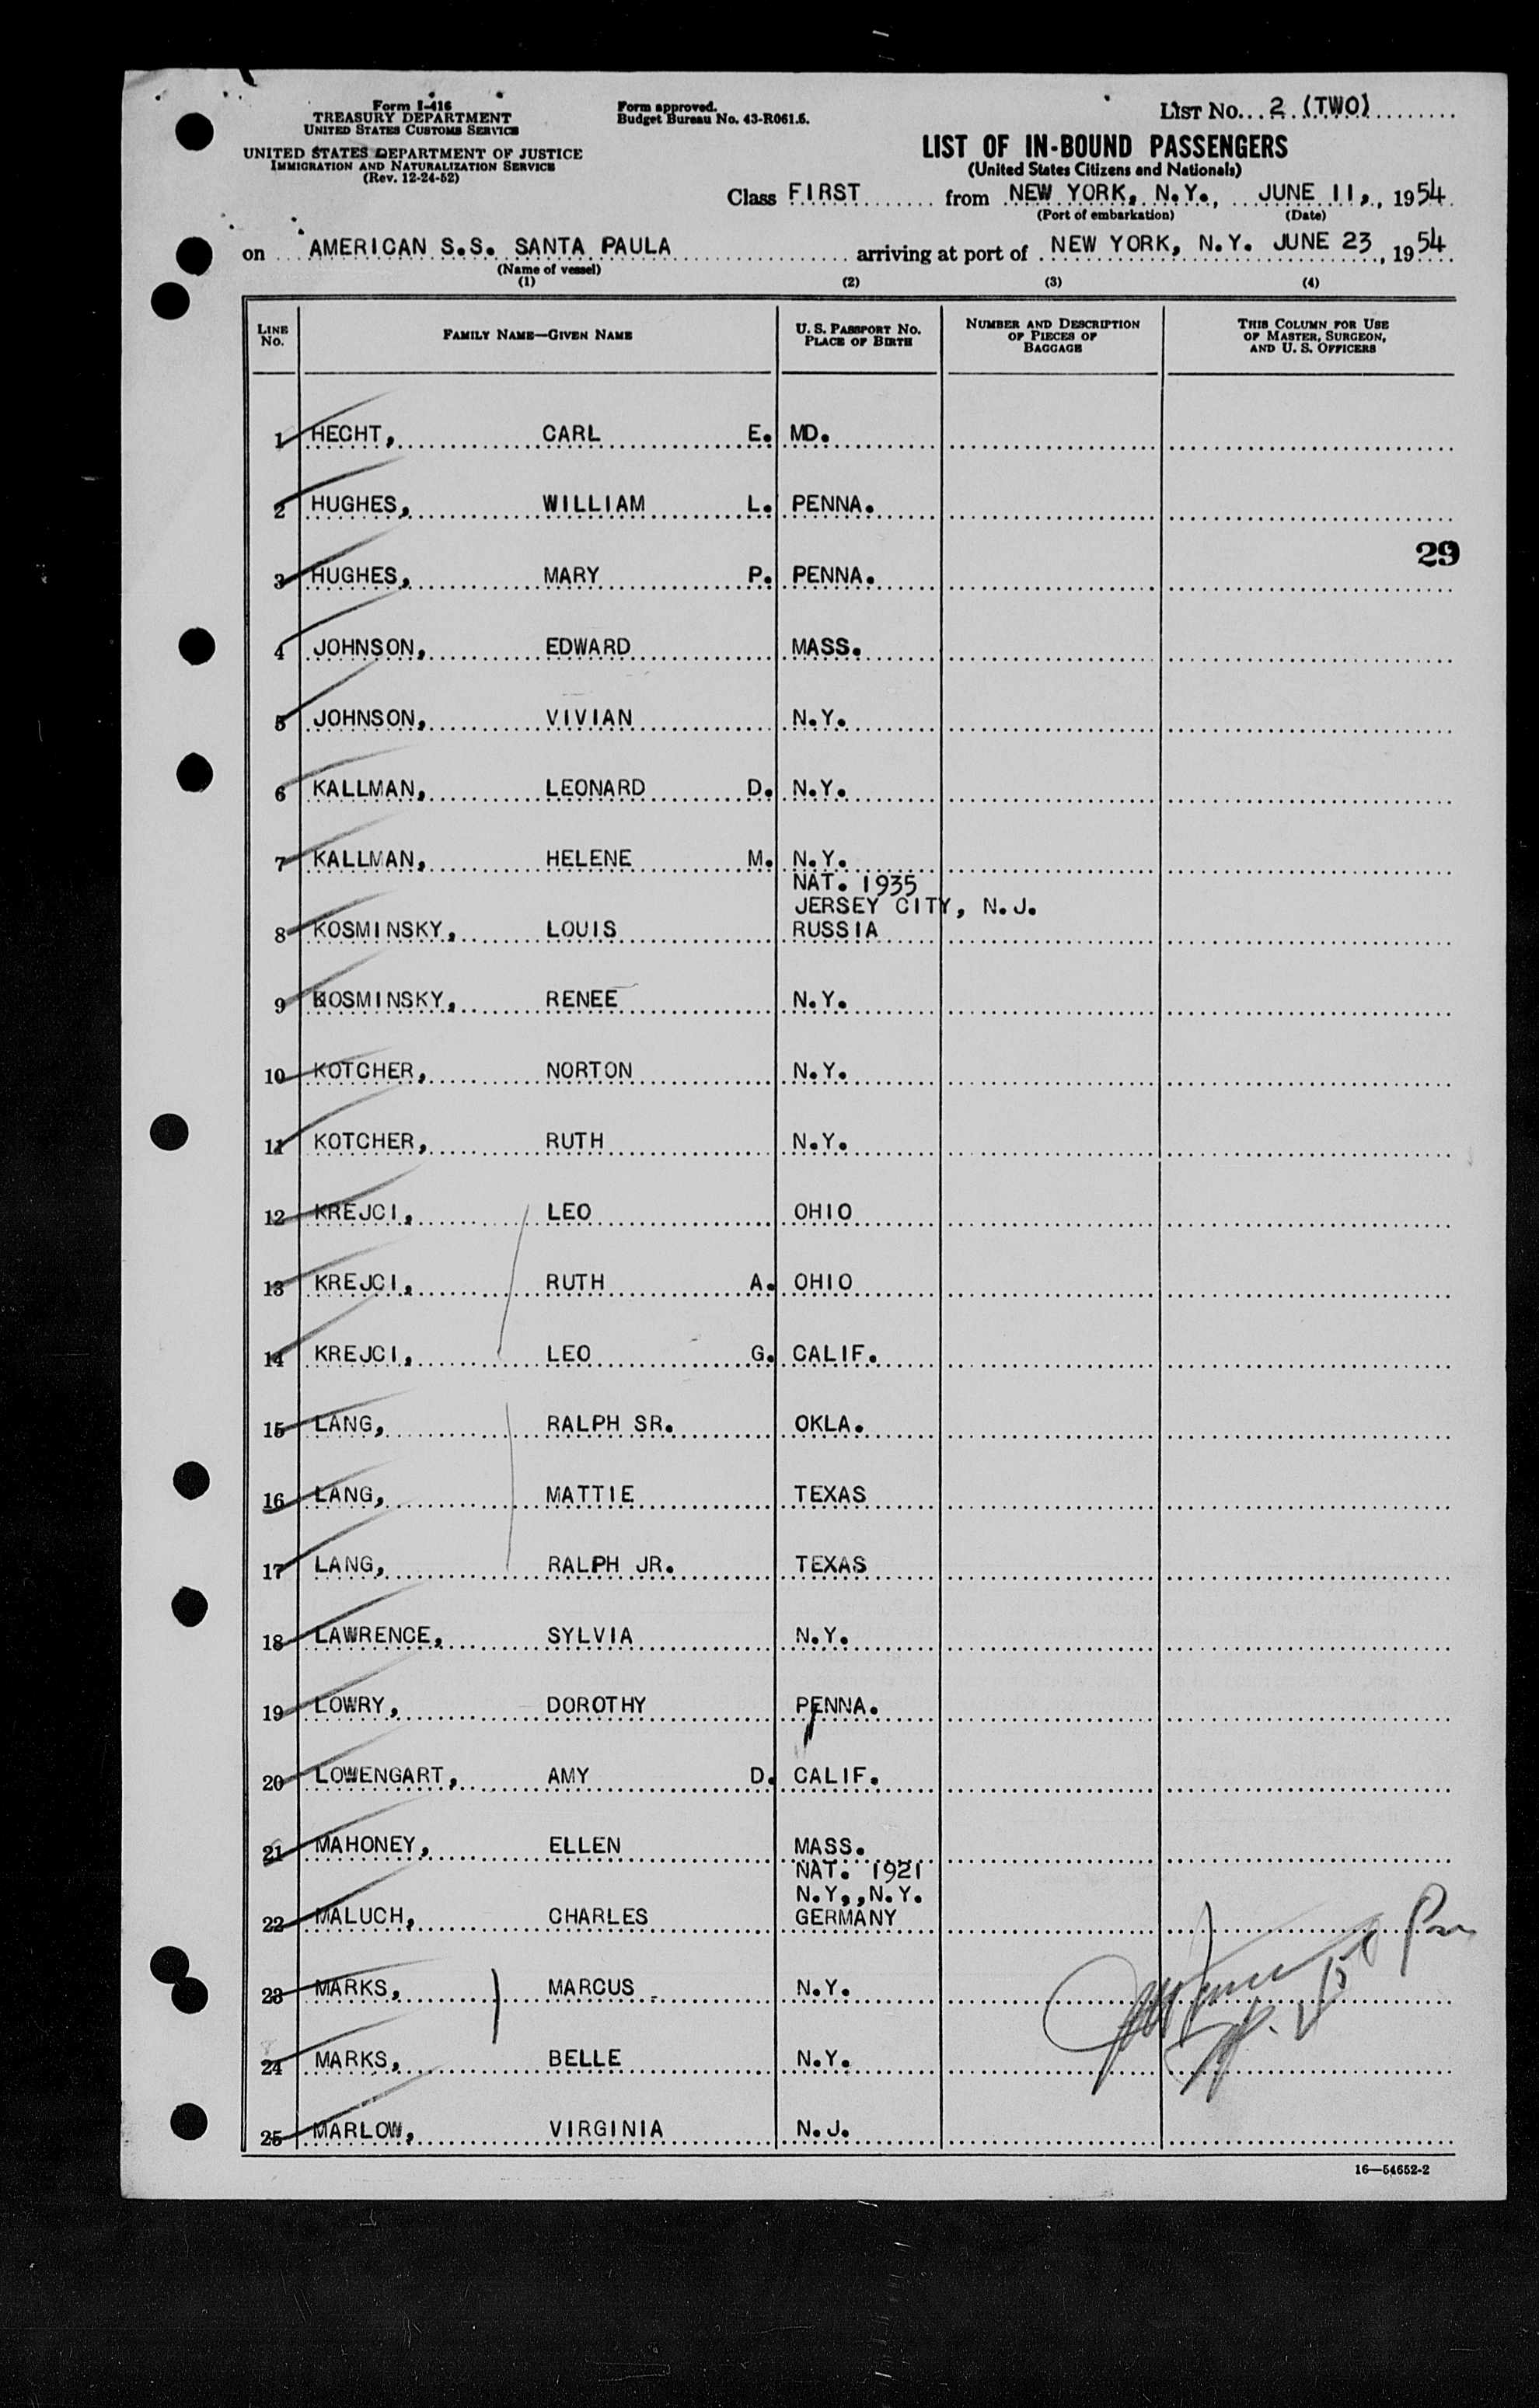 Form I-416
TREASURY DEPARTMENT
UNITED STATES CUSTOMS SERVICE
UNITED STATES DEPARTMENT OF JUSTICE
IMMIGRATION AND NATURALIZATION SERVICE
(Rev. 12-24-52)
Form approved.
Budget Bureau No. 43-R061.5.
LIST No. 2 (TWO)
LIST OF IN-BOUND PASSENGERS
(United States Citizens and Nationals)
Class FIRST from NEW YORK, N.Y., JUNE 11, , 1954
(Port of embarkation) (Date)
on AMERICAN S.S. SANTA PAULA arriving at port of NEW YORK, N.Y. JUNE 23 , 1954
(Name of vessel)
(1) (2) (3) (4)
LINE No. FAMILY NAME—GIVEN NAME U. S. PASSPORT NO. PLACE OF BIRTH NUMBER AND DESCRIPTION OF PIECES OF BAGGAGE THIS COLUMN FOR USE OF MASTER, SURGEON, AND U. S. OFFICERS
1 HECHT, CARL E. MD.
2 HUGHES, WILLIAM L. PENNA.
29
3 HUGHES, MARY P. PENNA.
4 JOHNSON, EDWARD MASS.
5 JOHNSON, VIVIAN N.Y.
6 KALLMAN, LEONARD D. N.Y.
7 KALLMAN, HELENE M. N.Y.
NAT. 1935
JERSEY CITY, N.J.
8 KOSMINSKY, LOUIS RUSSIA
9 KOSMINSKY, RENEE N.Y.
10 KOTCHER, NORTON N.Y.
11 KOTCHER, RUTH N.Y.
12 KREJCI, LEO OHIO
13 KREJCI, RUTH A. OHIO
14 KREJCI, LEO G. CALIF.
15 LANG, RALPH SR. OKLA.
16 LANG, MATTIE TEXAS
17 LANG, RALPH JR. TEXAS
18 LAWRENCE, SYLVIA N.Y.
19 LOWRY, DOROTHY PENNA.
20 LOWENGART, AMY D. CALIF.
21 MAHONEY, ELLEN MASS.
NAT. 1921
N.Y.,N.Y.
22 MALUCH, CHARLES GERMANY
23 MARKS, MARCUS N.Y.
24 MARKS, BELLE N.Y.
25 MARLOW, VIRGINIA N.J.
16—54652-2